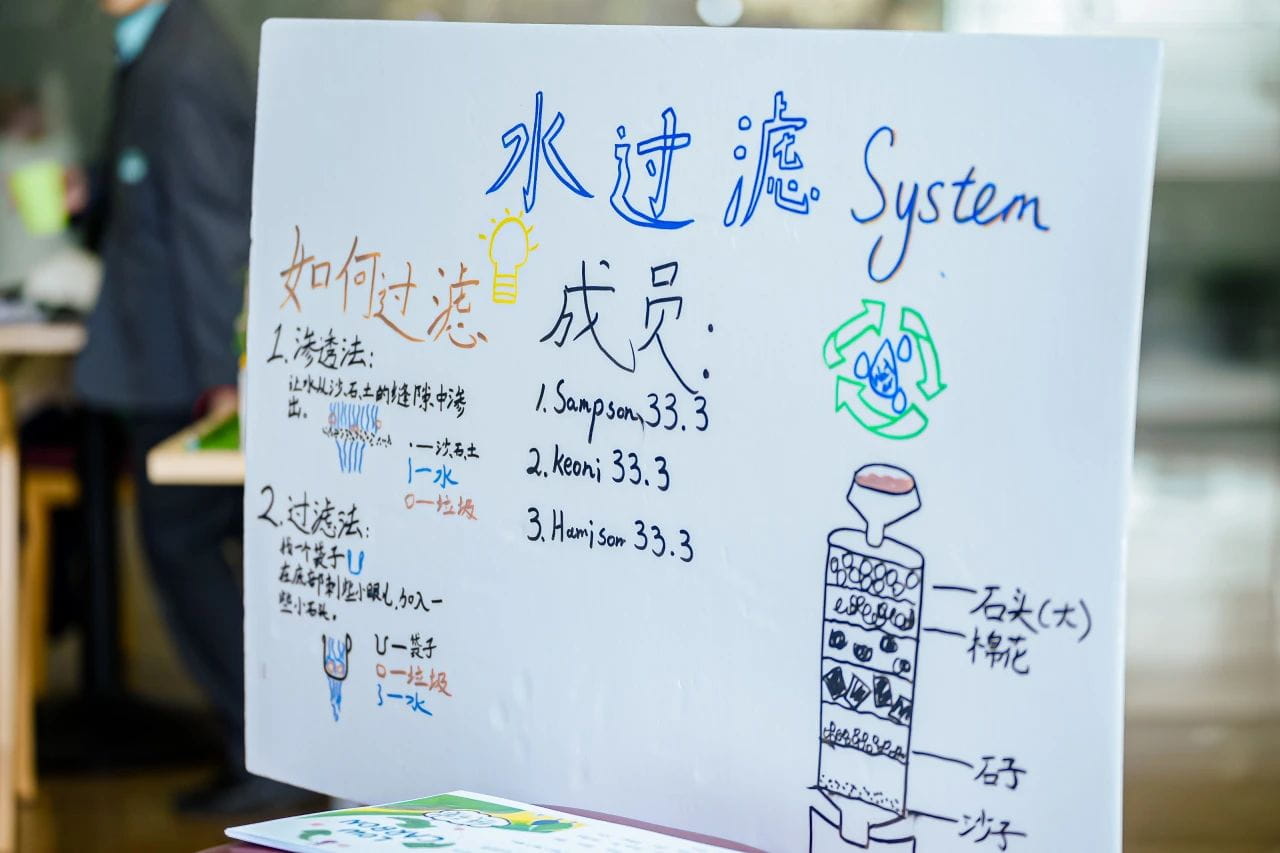 水过滤 System
如何过滤
1. 渗透法:
让水从沙石土的缝隙中渗
出。
·—沙石土
水
0—垃圾
2. 过滤法:
找一个袋子
在底部刺些小眼儿,加入一
些小石头。
U—袋子
0—垃圾
3—水
成员:
1. Sampson 33.3
2. keoni 33.3
3. Hamison 33.3
石头(大)
棉花
石子
沙子